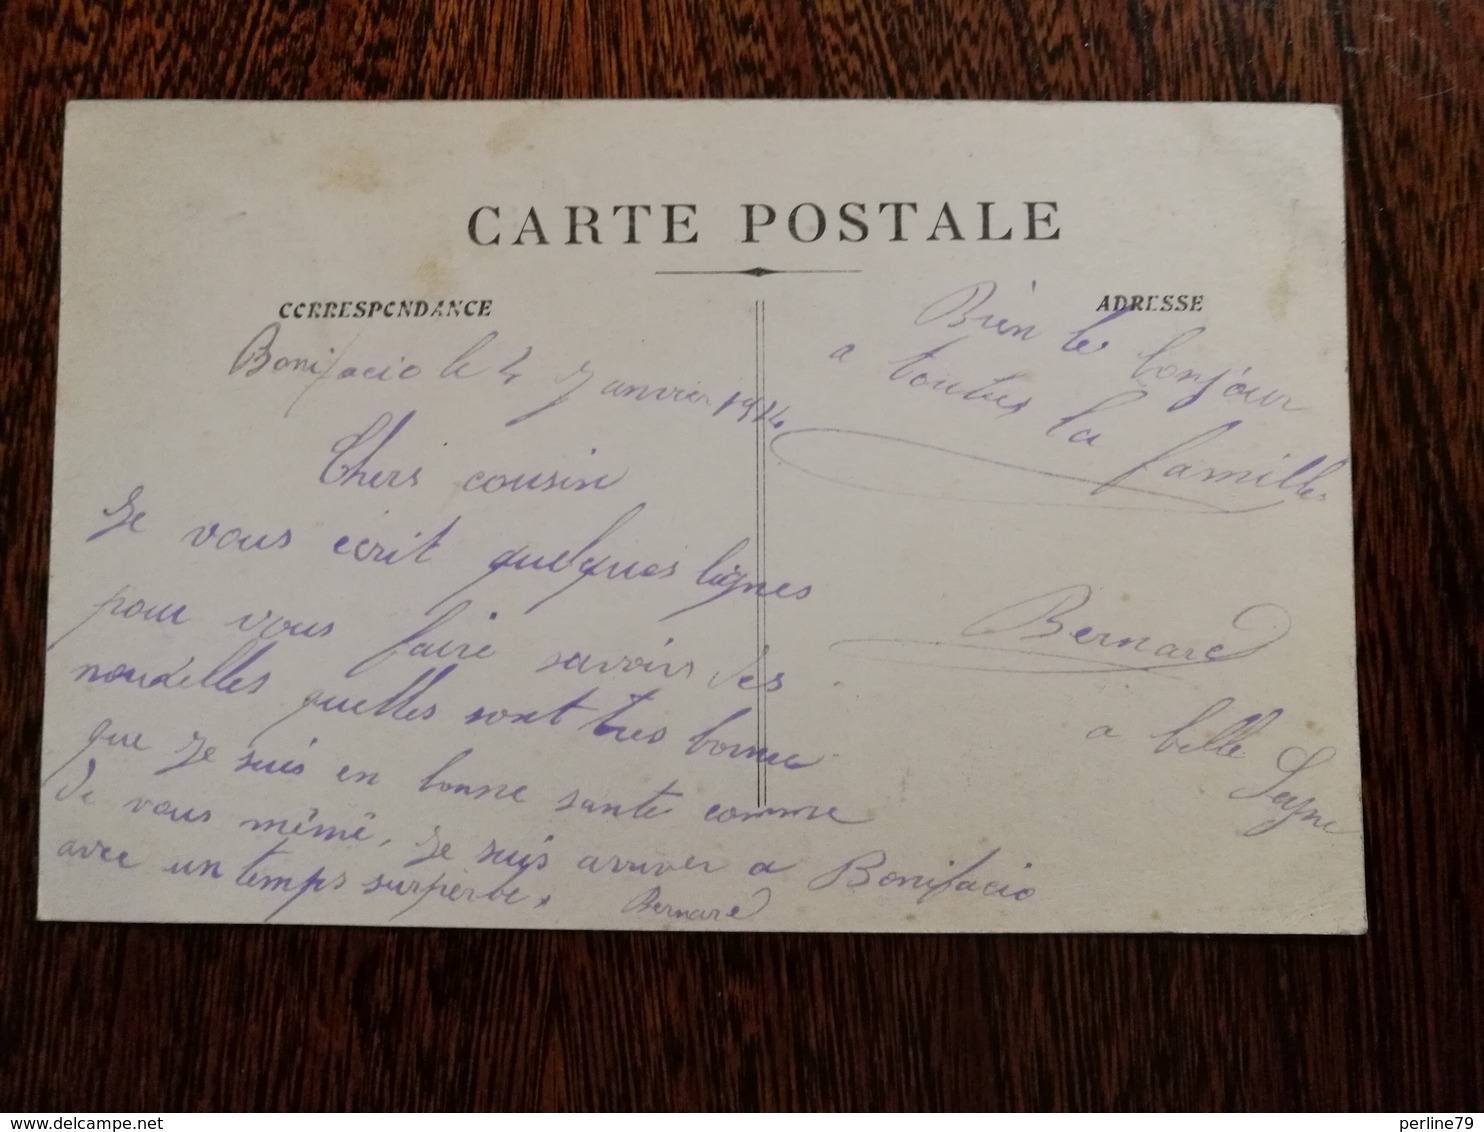 CARTE POSTALE
CORRESPONDANCE
Bonifacio le 4 Janvier 1914
Chers cousin
Je vous ecrit quelques lignes
pour vous faire savoirs des
nouvelles quelles sont tres bonne
que Je suis en bonne sante comme
de vous même, Je suis arriver a Bonifacio
avec un temps surperbe,
Bernard
ADRESSE
Bien le bonjour
a toutes la famille
Bernard
a belle
perline79